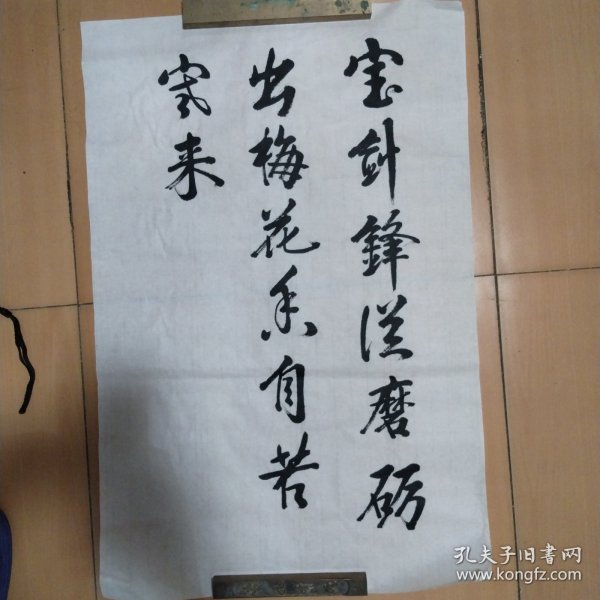 宝剑鋒从磨砺
出梅花香自苦
寒来
孔夫子旧書网
www.kongfz.com